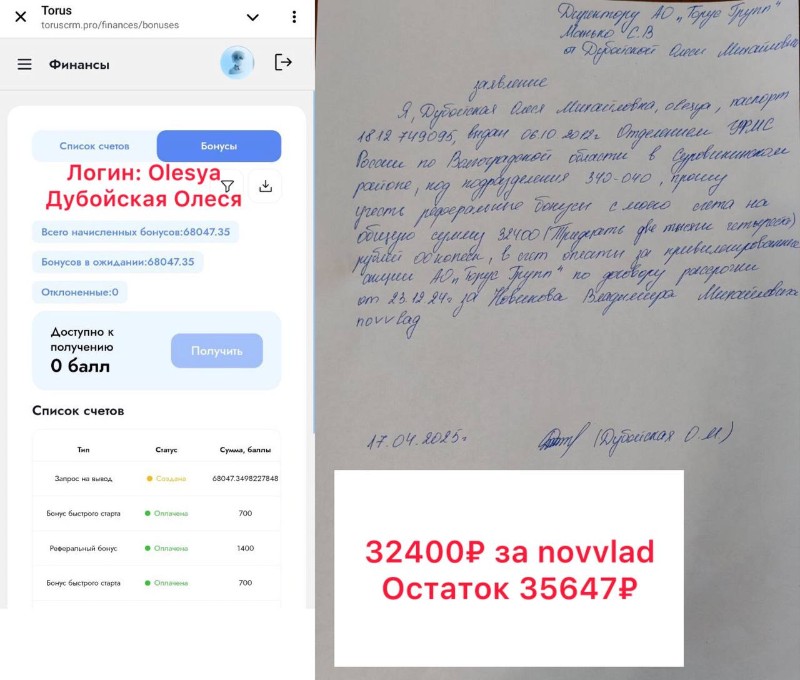 Torus
toruscrm.pro/finances/bonuses
Финансы
Список счетов
Бонусы
Логин: Olesya
Дубойская Олеся
Всего начисленных бонусов:68047.35
Бонусов в ожидании:68047.35
Отклоненные:0
Доступно к
получению
0 балл
Получить
Список счетов
Тип Статус Сумма, баллы
Запрос на вывод Создана 68047.3498227848
Бонус быстрого старта Оплачена 700
Реферальный бонус Оплачена 1400
Бонус быстрого старта Оплачена 700
Директору АО „Торус Групп"
Матько С.В
от Дубойской Олеси Михайловны
заявление
Я, Дубойская Олеся Михайловна, паспорт
1812 749095, выдан 06.10 2012г Отделением УФМС
России по Волгоградской области в Суровикинском
районе, код подразделения 340-040, прошу
учесть реферальные бонусы с моего счета на
общую сумму 32400 (Тридцать две тысячи четыреста)
рублей 00 копеек, в счет оплаты за привилегированные
акции АО „Торус Групп" по договору рассрочки
от 23.12.24г за Новикова Владимира Михайловича
novvlad
17.04.2025г (Дубойская О.М)
32400₽ за novvlad
Остаток 35647₽